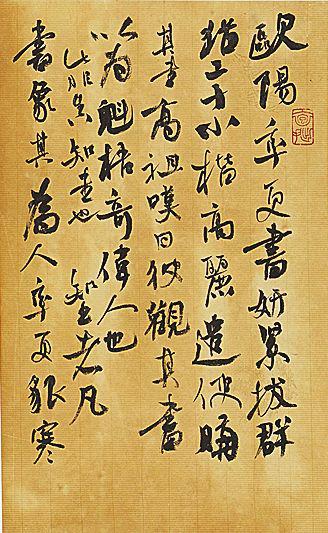 歐陽率更書妍緊拔群
猶工于小楷高麗遣使購
其書高祖嘆曰彼觀其書
以為魁梧奇偉人也
此非真知書也知書者凡
書象其為人率更貌寒